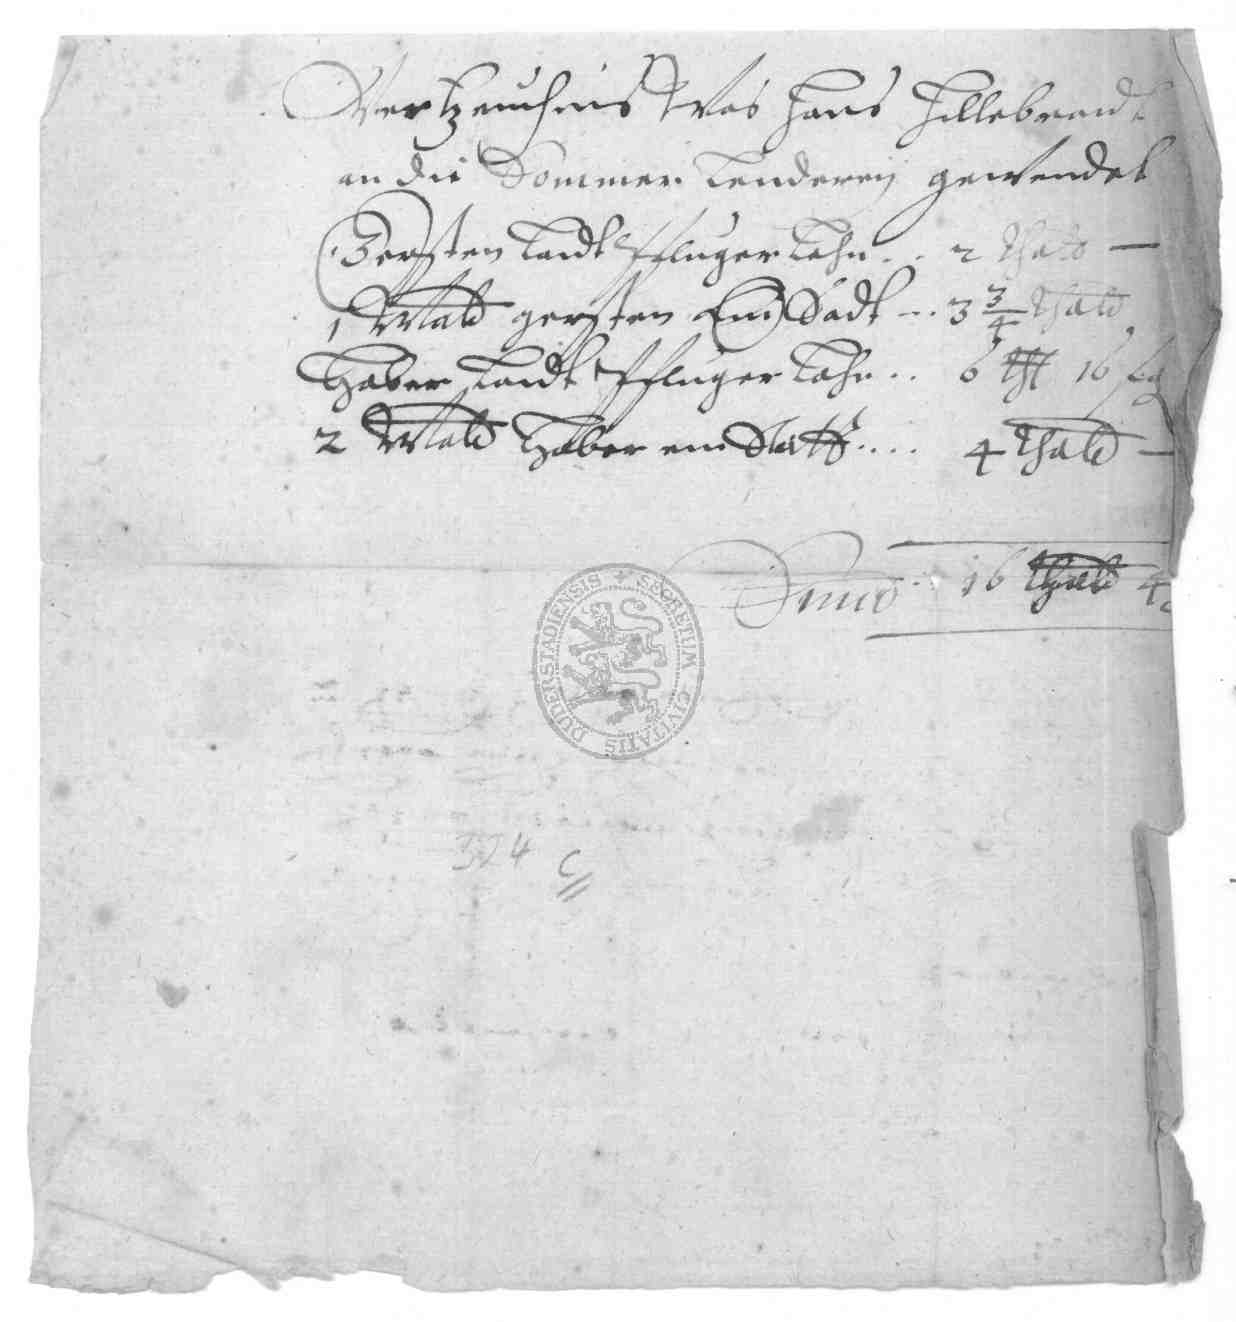 Vertzeuchnis Was Hans Hillebrandt
an die Sommer Lenderey gewendet
Gersten Landt Pfluger Lohn .. 2 thald —
1 Mald gersten Ein Sadt ... 3 3/4 thald
Haber Landt Pfluger Lohn .. 6 thl 16
2 Mald Haber ein Sadt .... 4 thald —
Sum̄a 16 thald 4
SECRETUM CIVITATIS DUDERSTADIENSIS
324 C